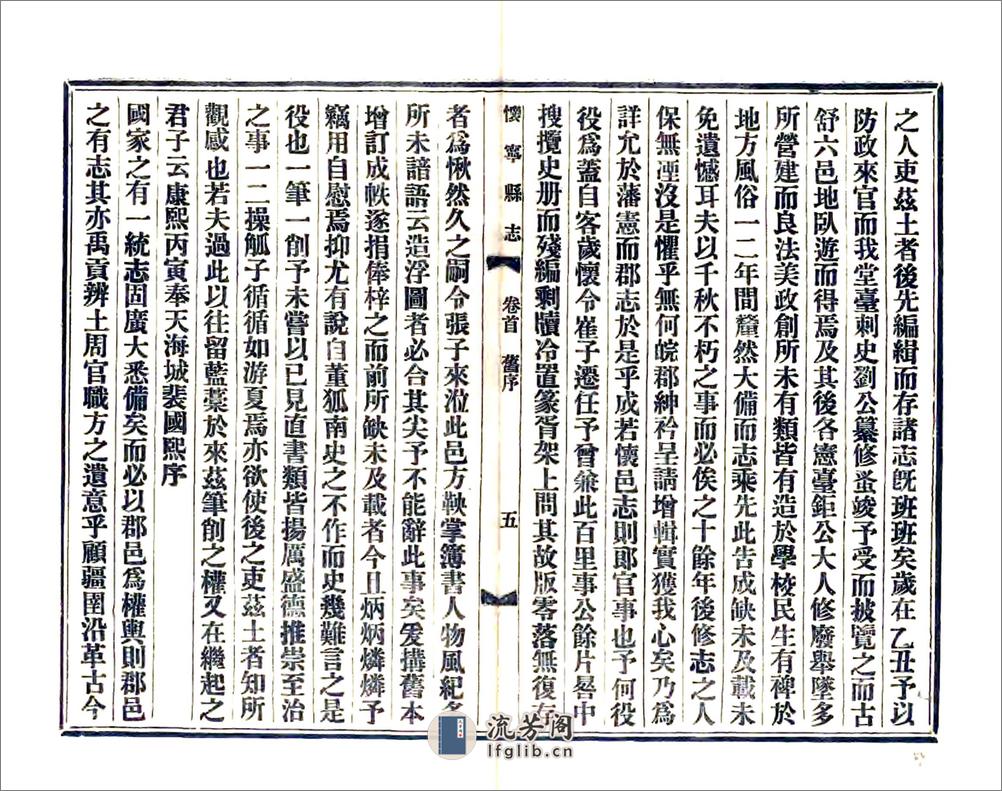 之人吏茲土者後先編緝而存諸志旣班班矣歲在乙丑予以
防政來官而我堂臺刺史劉公纂修蚤竣予受而披覽之而古
舒六邑地臥遊而得焉及其後各憲臺鉅公大人修廢舉墜多
所營建而良法美政創所未有類皆有造於學校民生有裨於
地方風俗一二年間釐然大備而志乘先此告成缺未及載未
免遺憾耳夫以千秋不朽之事而必俟之十餘年後修志之人
保無湮沒是懼乎無何皖郡紳衿呈請增輯實獲我心矣乃爲
詳允於藩憲而郡志於是乎成若懷邑志則郎官事也予何役
役爲蓋自客歲懷令崔子遷任予曾𠔥此百里事公餘片晷中
搜攬史册而殘編剩牘冷置篆胥架上問其故版零落無復存
懷寧縣志 卷首 舊序 五
者爲愀然久之嗣令張子來涖此邑方鞅掌簿書人物風紀多
所未諳語云造浮圖者必合其尖予不能辭此事矣爰搆舊本
增訂成帙遂捐俸梓之而前所缺未及載者今且炳炳燐燐予
竊用自慰焉抑尤有說自董狐南史之不作而史幾難言之是
役也一筆一削予未嘗以已見直書類皆揚厲盛德推崇至治
之事一二操觚子循循如游夏焉亦欲使後之吏茲土者知所
觀感也若夫過此以往留藍藁於來茲筆削之權又在繼起之
君子云康熙丙寅奉天海城裴國熙序
國家之有一統志固廣大悉備矣而必以郡邑爲權輿則郡邑
之有志其亦禹貢辨土周官職方之遺意乎顧疆圉沿革古今
流芳阁
lfglib.cn